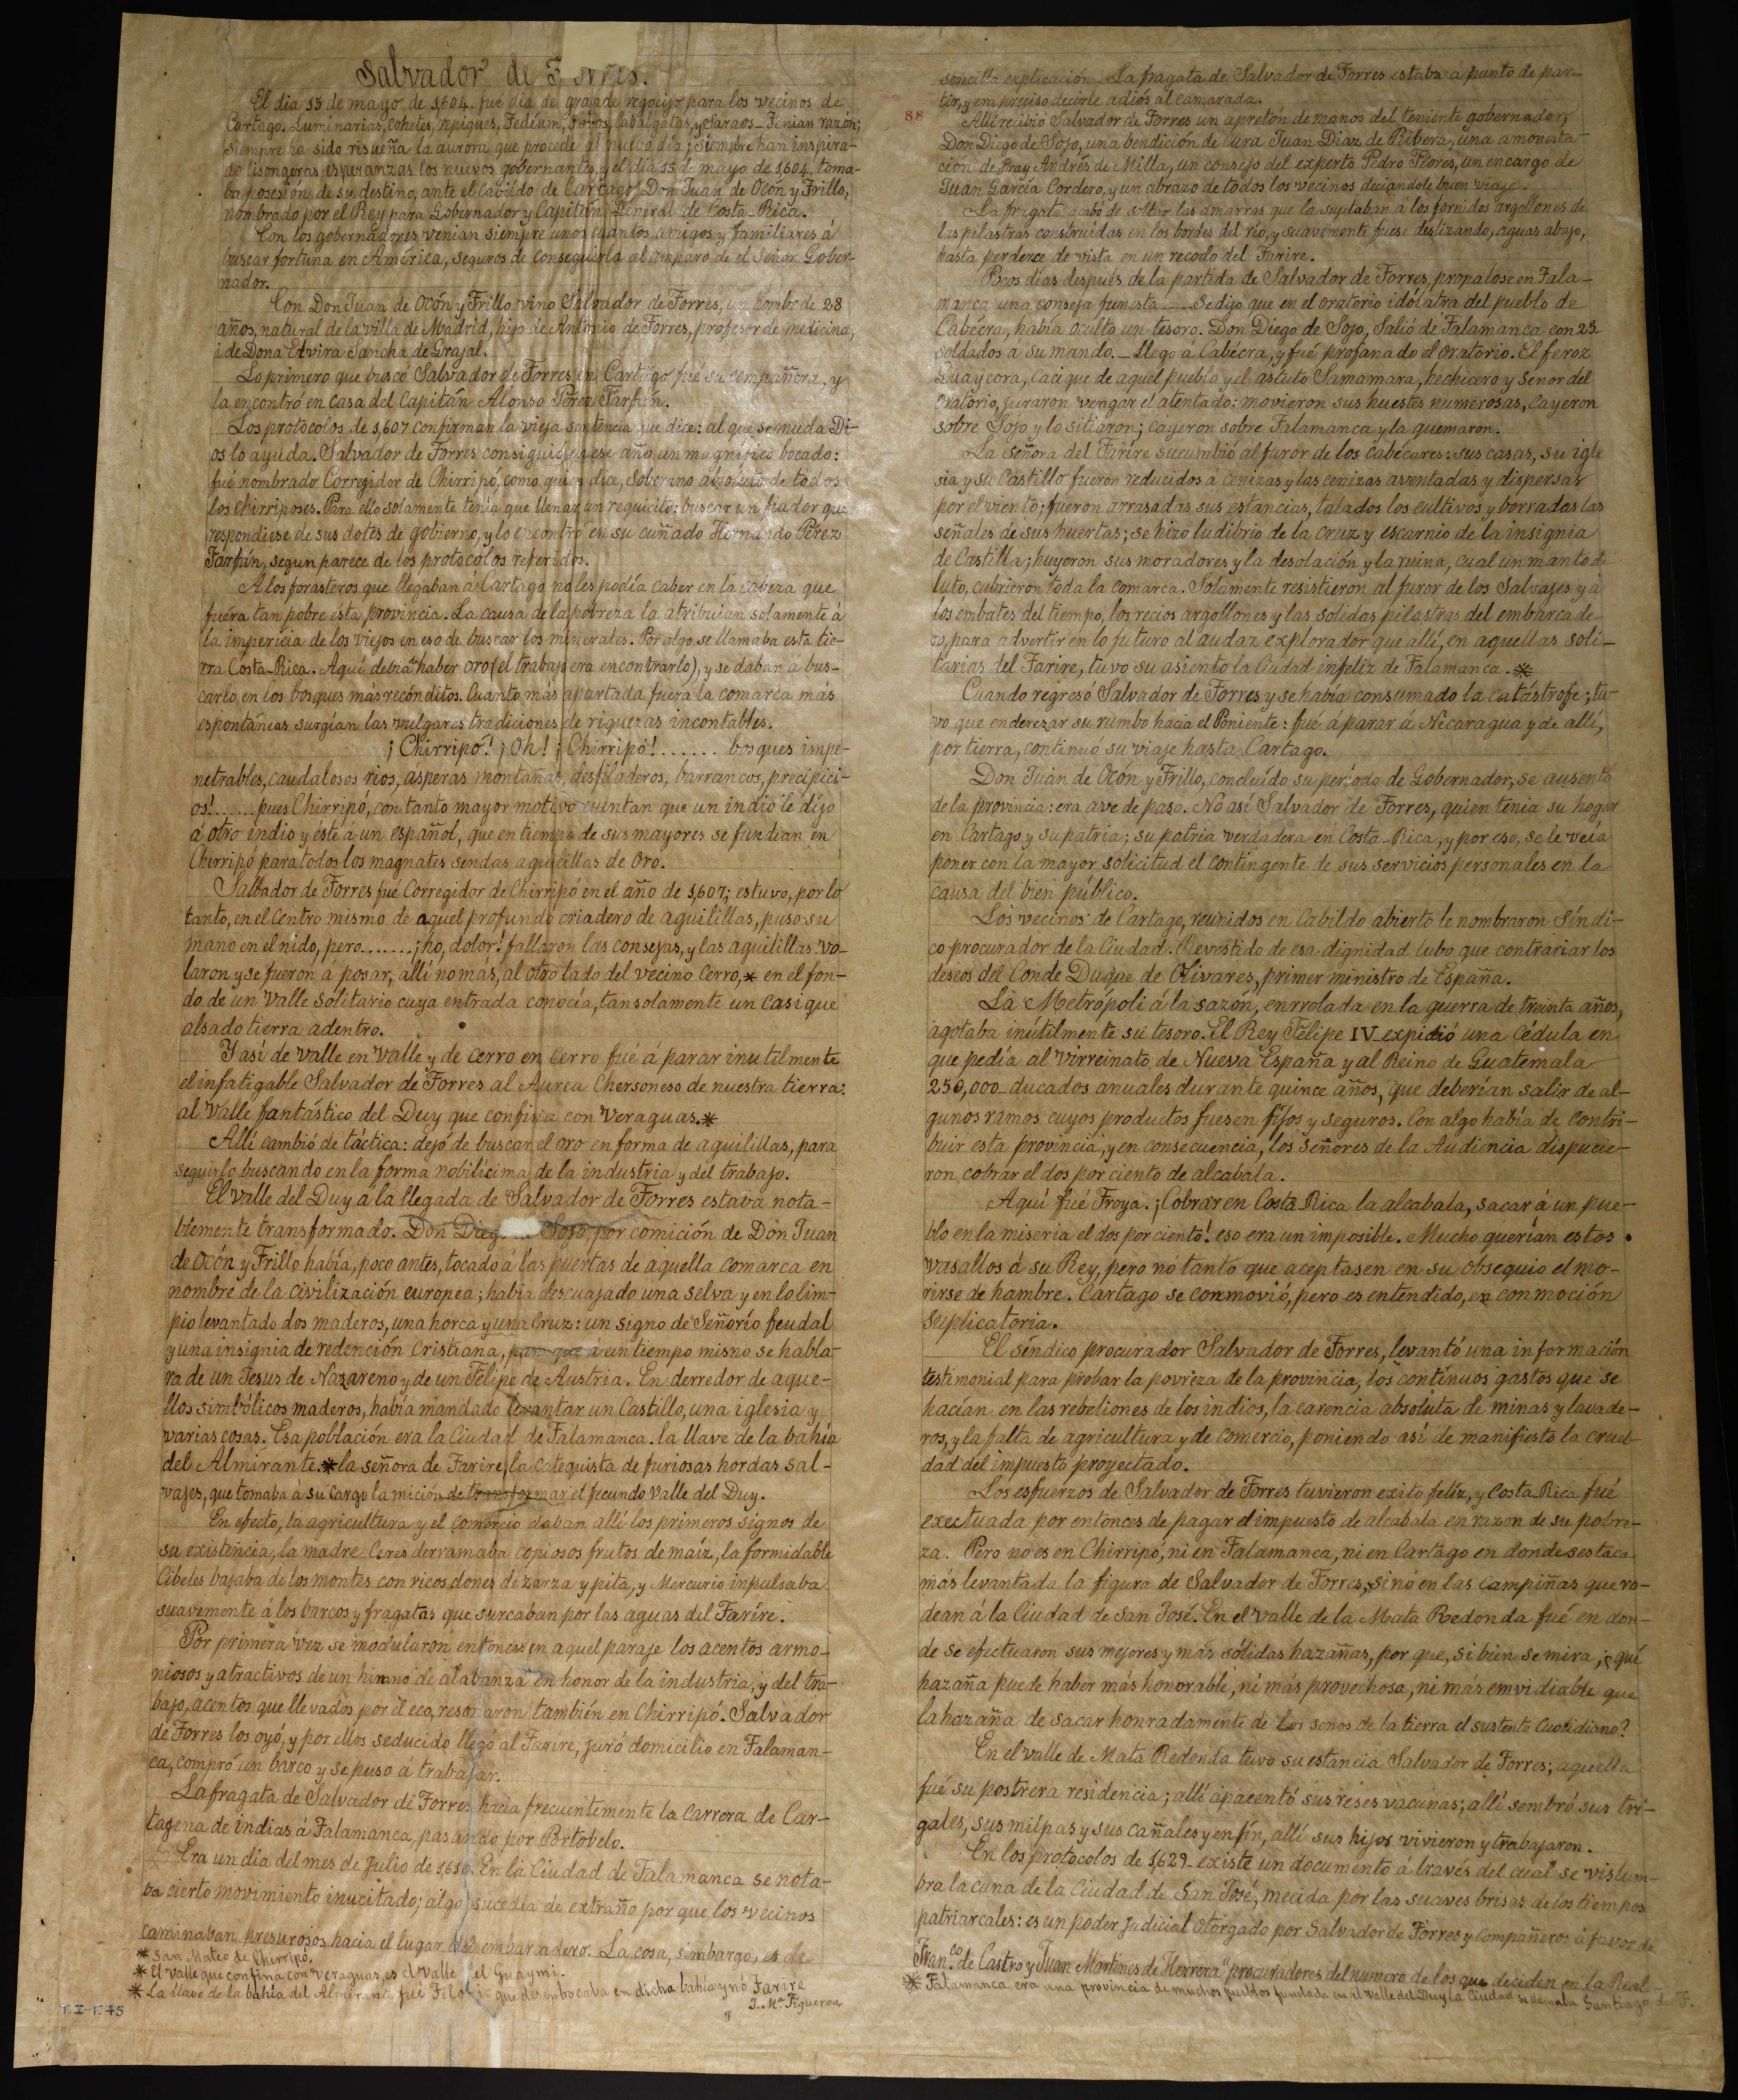 Salvador de Torres.
El dia 15 de mayo de 1,604. fué dia de grande regocijo para los vecinos de
Cartago. Luminarias, cohetes, repiques, Tedéum, toros, Cabalgatas, y Saraos_ Tenian razón;
siempre ha sido risueña la aurora que procede al nuevo dia; siempre han inspira-
do lisongeras esperanzas los nuevos gobernantes, y el día 15 de mayo de 1,604, toma-
ba posesión de su destino, ante el Cabildo de Cartago, Don Juan de Ocón y Trillo,
nombrado por el Rey para Gobernador y Capitán General de Costa-Rica.
Con los gobernadores venian siempre unos cuantos amigos y familiares á
buscar fortuna en América, seguros de conseguirla al amparo de el Señor Gober-
nador.
Con Don Juan de Ocón y Trillo vino Salvador de Torres, un hombr de 28
años, natural de la villa de Madrid, hijo de Antonio de Torres, profesor de medicina,
i de Dona Elvira Sancha de Grajal.
Lo primero que buscó Salvador de Torres en Cartago fué su compañera, y
la encontró en casa del Capitán Alonso Pérez Farfán.
Los protocolos de 1,607 confirman la vieja sentencia que dice: al que se muda Di-
os lo ayuda. Salvador de Torres consiguió en ese año un magnifico bocado:
fué nombrado Corregidor de Chirripó, como quien dice, Soberano absoluto de todos
los chirriposes. Para ello solamente tenia que llenar un requicito: buscar un fiador que
respondiese de sus dotes de gobierno, y lo encontró en su cuñado Hernando Pérez
Farfán, segun parece de los protocolos referidos.
A los forasteros que llegaban á Cartago no les podía caber en la cabeza que
fuera tan pobre esta provincia. La causa de la pobreza la atribuian solamente á
la impericia de los viejos en eso de buscar los minerales. Por algo se llamaba esta tie-
rra Costa-Rica. Aquí debia haber oro (el trabajo era encontrarlo), y se daban a bus-
carlo en los bosques más recónditos. Cuanto más apartada fuera la comarca más
espontáneas surgían las vulgares tradiciones de riquezas incontables.
¡Chirripó! ¡Oh! ¡Chirripó!...... bosques impe-
netrables, caudalosos rios, ásperas montañas, desfiladeros, barrancos, precipici-
os!...... pues Chirripó, con tanto mayor motivo cuentan que un indio le dijo
á otro indio y este á un español, que en tiempo de sus mayores se fundian en
Chirripó para todos los magnates sendas aguilillas de oro.
Salbador de Torres fué Corregidor de Chirripó en el año de 1,607; estuvo, por lo
tanto, en el centro mismo de aquel profundo criadero de aguilillas, puso su
mano en el nido, pero.......¡ho, dolor! fallaron las consejas, y las aguilillas vo-
laron y se fueron á posar, allí no más, al otro lado del vecino cerro,* en el fon-
do de un valle solitario cuya entrada conocía, tan solamente un casique
alsado tierra adentro.
Y así de valle en valle y de cerro en cerro fué á parar inutilmente
el infatigable Salvador de Torres al Aurea Chersoneso de nuestra tierra:
al valle fantástico del Duy que confina con Veraguas.*
Allí cambió de táctica: dejó de buscar el oro en forma de aguilillas, para
seguirlo buscando en la forma nobilícima de la industria y del trabajo.
El valle del Duy á la llegada de Salvador de Torres estava nota-
blemente transformado. Don Sojo, por comición de Don Juan
de Ocón y Trillo había, poco antes, tocado á las puertas de aquella comarca en
nombre de la civilización europea; había descuajado una selva y en lo lim-
pio levantado dos maderos, una horca y una cruz: un signo de Señorío feudal
y una insignia de redención Cristiana, para que á un tiempo mismo se habla-
ra de un Jesus de Nazareno y de un Felipe de Austria. En derredor de aque-
llos simbólicos maderos, había mandado levantar un Castillo, una iglesia y
varias cosas. Esa población era la Ciudad de Talamanca. la llave de la bahía
del Almirante.* la señora de Tarire, la catequista de furiosas hordas sal-
vajes, que tomaba a su cargo la mición de transformar el fecundo valle del Duy.
En efecto, la agricultura y el comercio daban allí los primeros signos de
su existencia, la madre Ceres derramaba copiosos frutos de maíz, la formidable
Cibeles bajaba de los montes con ricos dones de zarza y pita, y Mercurio inpulsaba
suavemente á los barcos y fragatas que surcaban por las aguas del Tarire.
Por primera vez se modularon entonces en aquel paraje los acentos armo-
niosos y atractivos de un himno de alabanza en honor de la industria, y del tra-
bajo, acentos que llevados por el eco, resonaron también en Chirripó. Salvador
de Torres los oyó, y por ellos seducido llegó al Tarire, juró domicilio en Talaman-
ca, compró un barco y se puso á trabajar.
La fragata de Salvador de Torres hacia frecuentemente la carrera de Car-
tagena de indias á Talamanca, pasando por Portobelo.
Era un día del mes de Julio de 1,610. En la Ciudad de Talamanca se nota-
ba cierto movimiento inucitado; algo sucedía de extraño por que los vecinos
caminaban presurosos hacia el lugar del embarcadero. La cosa, simbargo, es de
* San Mateo de Chirripó.
* El valle que confina con Veraguas, es el valle del Guaymi.
* La llave de la bahía del Almirante fué que desembocaba en dicha bahía y no Tarire
J. Mª Figueroa
T-I-F-45
88
sencilla explicación_ La fragata de Salvador de Torres estaba á punto de par-
tir, y era preciso decirle adiós al camarada.
Allí recibió Salvador de Torres un apretón de manos del teniente gobernador
Don Diego de Sojo, una bendición de Cura Juan Diaz de Ribera, una amonesta-
ción de Fray Andrés de Milla, un consejo del experto Pedro Flores, un encargo de
Juan García Cordero, y un abrazo de todos los vecinos deciandole buen viaje.
La fragata acabó de soltar las amarras que la sujetaban a los fornidos argollones de
las pilastras construidas en los bordes del río, y suavemente fuese deslizando, aguas abajo,
hasta perderce de vista en un recodo del Tarire.
Pocos días después de la partida de Salvador de Torres, propalose en Tala-
manca una conseja funesta...... Se dijo que en el oratorio idólatra del pueblo de
Cabécra, había oculto un tesoro. Don Diego de Sojo, Salió de Talamanca con 25
soldados á su mando._ Llego á Cabécra, y fué profanado el oratorio. El feroz
Guaycora, Cacique de aquel pueblo y el astuto Samamara, hechicero y Senor del
oratorio, juraron vengar el atentado: movieron sus huestes numerosas, Cayeron
sobre Sojo y lo sitiaron; cayeron sobre Talamanca y la quemaron.
La Señora del Tarire sucumbió al furor de los cabécares: sus casas, su igle
sia y su Castillo fueron reducidos a cenizas y las cenizas aventadas y dispersas
por el viento; fueron arrasadas sus estancias, talados los cultivos y borradas las
señales de sus huertas; se hizo ludibrio de la cruz y escarnio de la insignia
de Castilla; huyeron sus moradores y la desolación y la ruina, cual un manto de
luto, cubrieron toda la comarca. Solamente resistieron al furor de los Salvajes y á
los embates del tiempo, los recios argollones y las solidas pilastras del embarcade-
ro, para advertir en lo futuro al audaz explorador que allí, en aquellas soli-
tarias del Tarire, tuvo su asiento la Ciudad infeliz de Talamanca.*
Cuando regresó Salvador de Torres y se había consumado la catástrofe; tu-
vo que enderezar su rumbo hacia el Poniente: fué á parar á Nicaragua y de allí,
por tierra, continuó su viaje hasta Cartago.
Don Juan de Ocón y Trillo, concluído su período de Gobernador, se ausentó
de la provincia: era ave de paso. No así Salvador de Torres, quien tenia su hogar
en Cartago y su patria; su patria verdadera en Costa-Rica, y por eso, se le veía
poner con la mayor solicitud el contingente de sus servicios personales en la
causa del bien público.
Los vecinos de Cartago, reunidos en Cabildo abierto le nombraron Síndi-
co procurador de la Ciudad. Revestido de esa dignidad tubo que contrariar los
deseos del Conde Duque de Olivares, primer ministro de España.
La Metrópoli á la sazón, enrrolada en la guerra de treinta años,
agotaba inútilmente su tesoro. El Rey Felipe IV expidió una Cédula en
que pedía al Virreinato de Nueva España y al Reino de Guatemala
250,000 ducados anuales durante quince años, que deberían salir de al-
gunos ramos cuyos productos fuesen fijos y seguros. Con algo había de contri-
buir esta provincia, y en consecuencia, los Señores de la Audiencia dispucie-
ron cobrar el dos por ciento de alcabala.
Aquí fué Troya. ¡Cobrar en Costa Rica la alcabala, sacar á un pue-
blo en la miseria el dos por ciento! eso era un imposible. Mucho querían estos
vasallos á su Rey, pero nó tanto que aceptasen en su obsequio el mo-
rirse de hambre. Cartago se conmovió, pero es entendido, en conmoción
suplicatoria.
El síndico procurador Salvador de Torres, levantó una información
testimonial para probar la povreza de la provincia, los contínuos gastos que se
hacían en las rebeliones de los indios, la carencia absoluta de minas y lavade-
ros, y la falta de agricultura y de comercio, poniendo así de manifiesto la cruel-
dad del impuesto proyectado.
Los esfuerzos de Salvador de Torres tuvieron exito feliz, y Costa-Rica fué
exectuada por entonces de pagar el impuesto de alcabala en razon de su pobre-
za. Pero no es en Chirripó, ni en Talamanca, ni en Cartago en donde sestaca
más levantada la figura de Salvador de Torres, sinó en las campiñas que ro-
dean á la Ciudad de San José. En el valle de la Mata Redonda fué en don-
de se efectuaron sus mejores y más sólidas hazañas, por que, si bien se mira, ¿qué
hazaña puede haber más honorable, ni más provechosa, ni más emvidiable que
la hazaña de sacar honradamente de los senos de la tierra el sustento Cuotidiano?
En el valle de Mata Redonda tuvo su estancia Salvador de Torres; aquella
fué su postrera residencia; allí apacentó sus reses vacunas; allí sembró sus tri-
gales, sus milpas y sus cañales y en fín, allí sus hijos vivieron y trabajaron.
En los protocolos de 1,629 existe un documento á través del cual se vislum-
bra la cuna de la Ciudad de San José, mecida por las suaves brisas de los tiempos
patriarcales: es un poder judicial otorgado por Salvador de Torres y compañeros á favor de
Fran.co de Castro y Juan Martines de Herrera "procuradores del numero de los que deciden en la Real
* Talamanca era una provincia de muchos pueblos fundada en el valle del Duy La Ciudad se llamaba Santiago de T.